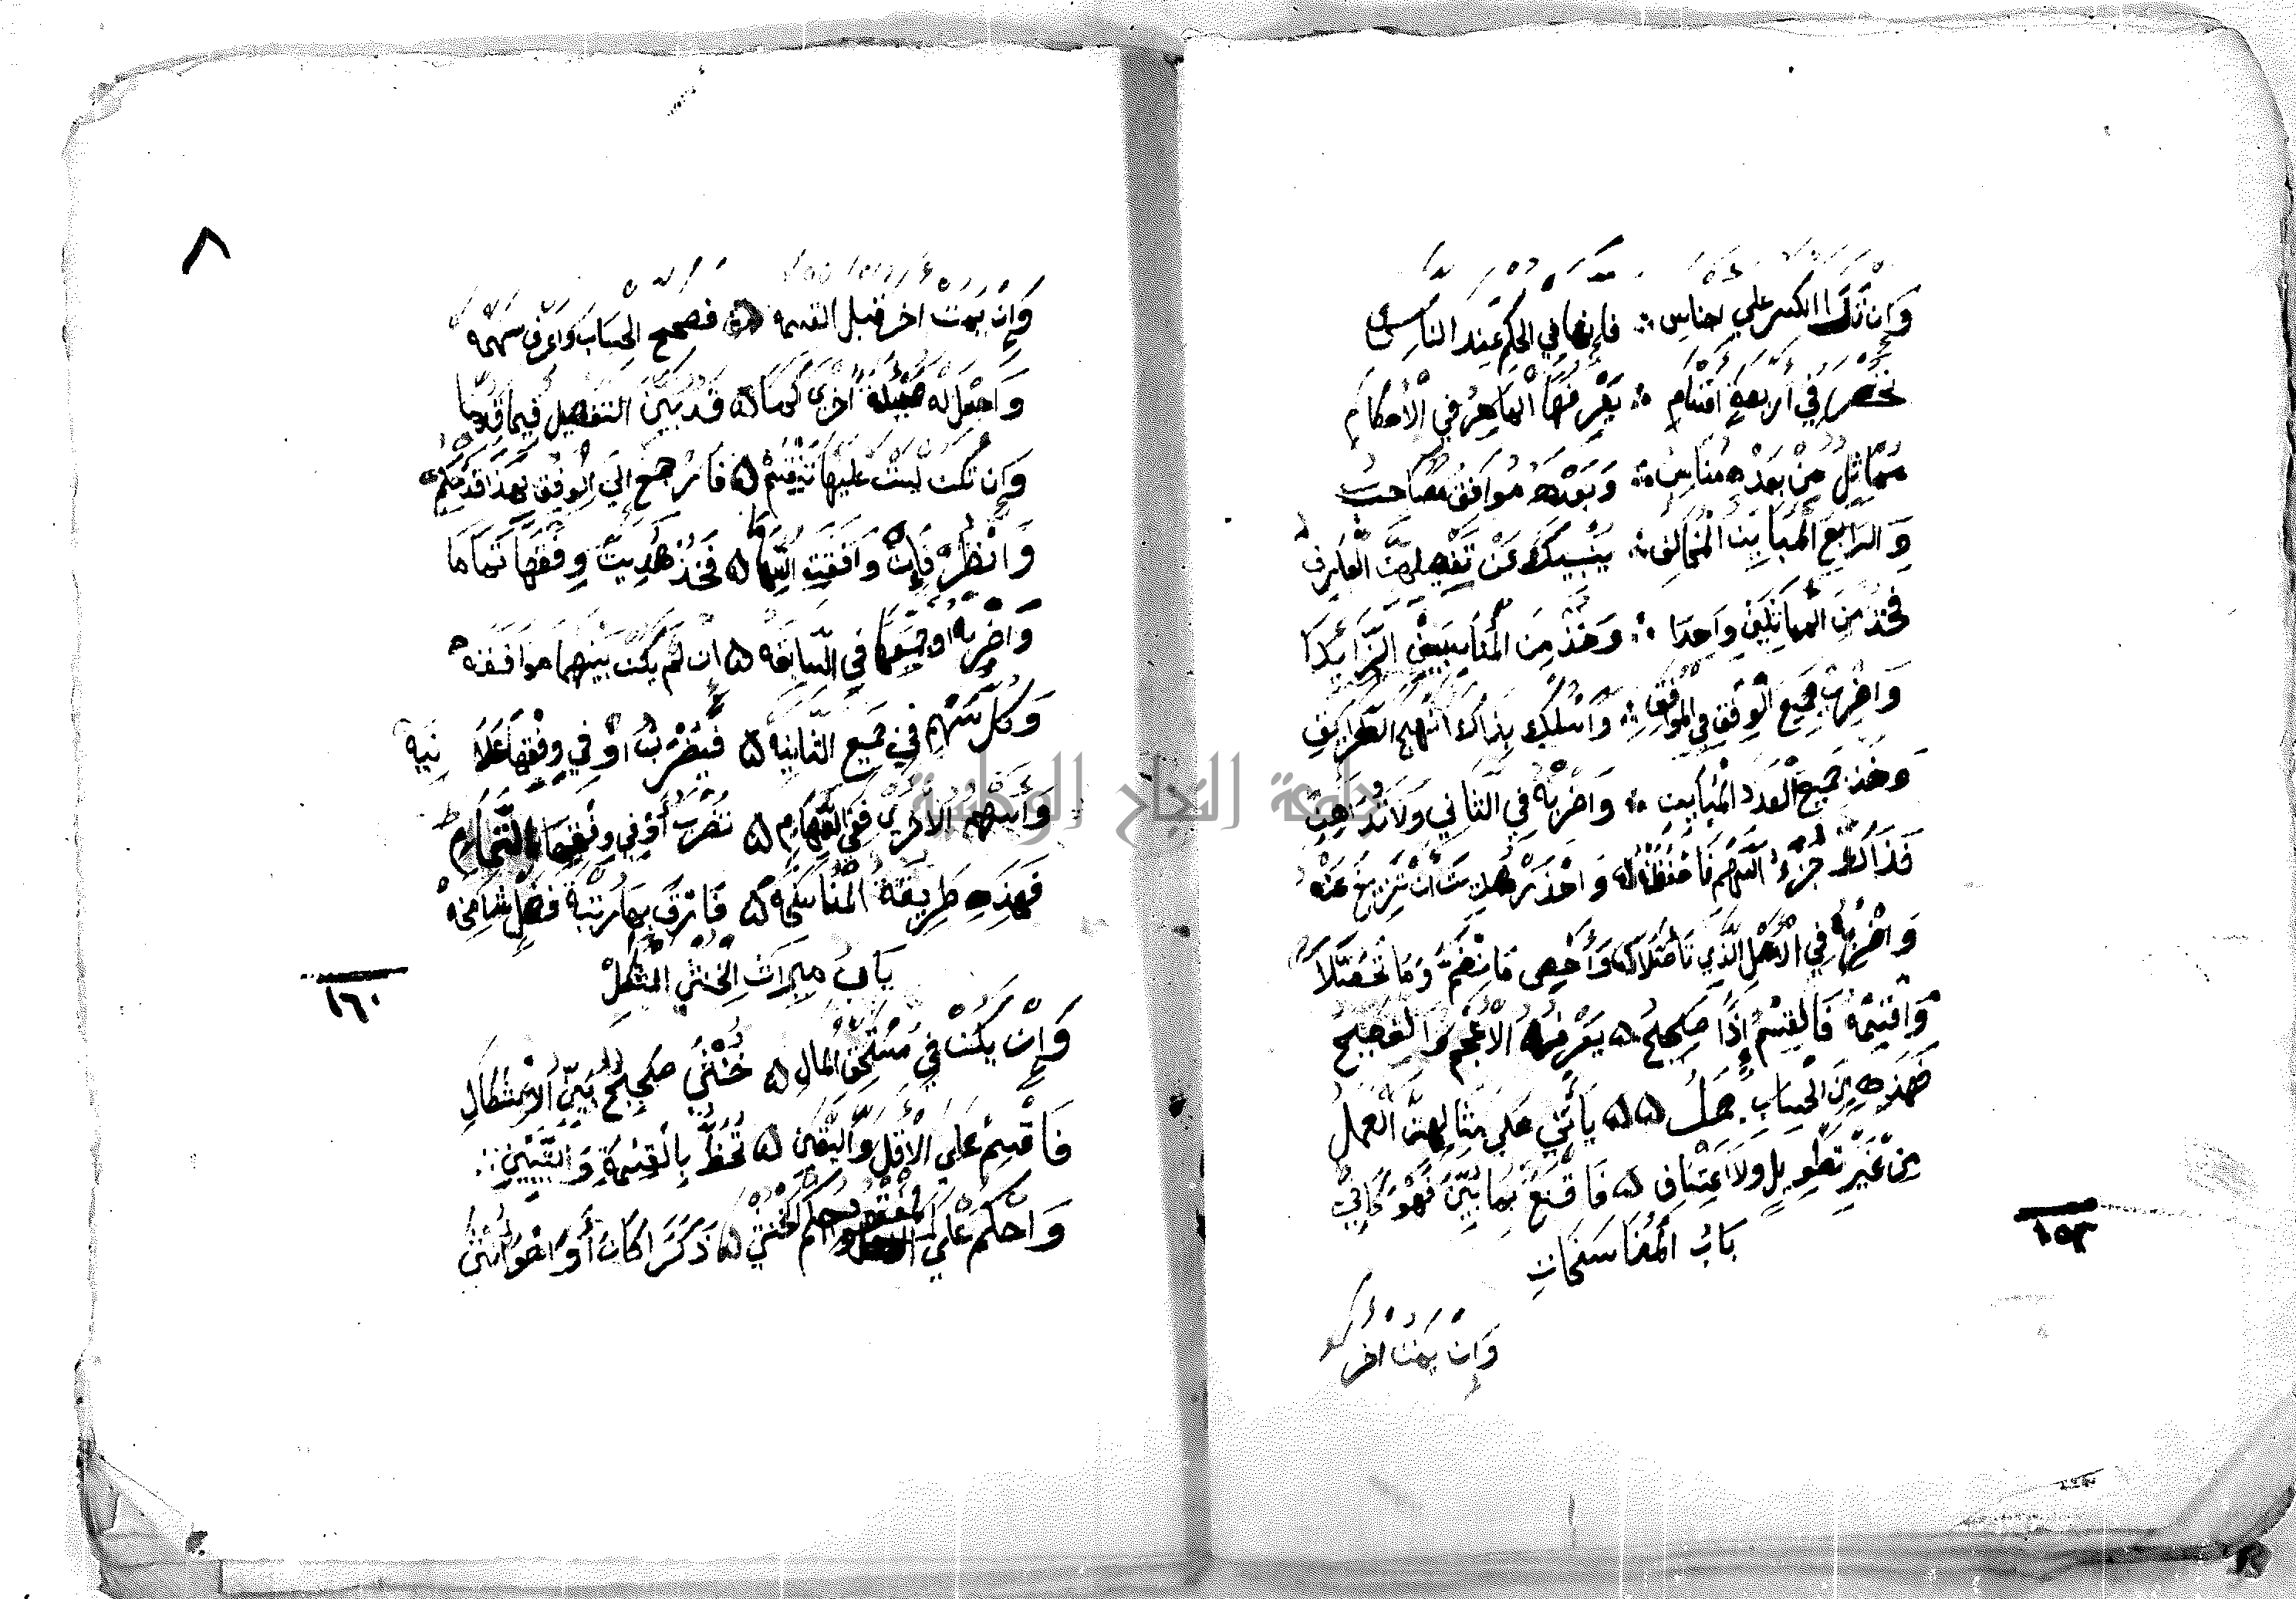 وَإِنْ تَكُ الكسر علي اجناسِ ؞ فَإِنها في الحكم عِند الناسِ
تحصر في أَربعةٍ أَقسَام ؞ يَعْرِفُهَا المَاهِرُ في الأحكَامِ
مُمَاثِلٌ مِنْ بَعْدِهِ مُنَاسِبُ ؞ وَبَعْدَهُ مُوَافِقٌ مُصَاحبُ
وَالرَابعُ المُبَايِنُ المُخَالِفُ ؞ يُنْبِيكَ عَنْ تَفْصِيلِهِنَّ العَارِفُ
فخذ مِنَ المماثِلَينِ وَاحِدَا ؞ وَخُذ مِنَ المُنَاسِبَينِ الزَّائِدَا
وَاضْرِبْ جَمِيعَ الوَفْقِ فِي المُوَافِقِ ؞ وَاسْلُكْ بِذَاكَ انْهَجَ الطَّرَائِقِ
وَخُذ جَمِيعَ الْعَدَدِ المُبَايِنِ ؞ وَاضْرِبْهُ فِي الثَّانِي وَلَا تُدَاهِنِ
فَذَاكَ جُزْءُ السَّهْمِ فَاحْفَظَنْهُ وَاحْذَرْ هُدِيتَ أَنْ تَزِيغَ عَنْهُ
وَاضْرِبْهُ فِي الأَصْلِ الَّذِي تَأَصَّلَا وَأَحْصِ مَا انْضَمَّ وَمَا تَحَصَّلَا
وَاقْسِمْهُ فَالقِسْمُ إِذًا صَحِيحُ ۵ يَعْرِفُهُ الأَعْجَمُ وَالفَصِيحُ
فَهَذِهِ مِنَ الحِسَابِ جُمَلُ ۵۵ يَأْتِي عَلَى مِثَالِهِنَّ العَمَلُ
مِنْ غَيْرِ تَطْوِيلٍ وَلَا اعْتِسَافِ ۵ فَاقْنَعْ بِمَا بُيِّنَ فَهْوَ كَافِي
١٥٣
بَابُ المُنَاسَخَاتِ
وَإِنْ يَمُتْ اخر
٨
وَإِنْ يَمُتْ اخر قبل القسمه ۵ فصحح الحِسَابَ وَاعْرِفْ سَهْمَهُ
وَاجْعَل لَهُ مَسْئَلَةً اخْرَى كَمَا ۵ قَدْ بُيِّنَ التَّفْصِيلُ فِيمَا قُدِّمَا
وَإِن تَكُنْ لَيْسَتْ عَلَيْهَا تَنْقَسِمْ ۵ فَارْجِعْ إِلَى الوَفْقِ بِهَذَا قَدْ حُكِمْ
وَانْظُرْ فَإِنْ وَافَقَتِ السِّهَامَا ۵ فَخُذْ هُدِيتَ وَفْقَهَا تَمَامَا
وَاضْرِبْهُ أَوْ جَمِيعَهَا فِي السَّابِقَهْ ۵ إن لَمْ يَكُنْ بَيْنَهُمَا مُوَافَقَهْ
وَكُلُّ سَهْمٍ فِي جَمِيعِ الثَّانِيَهْ ۵ فَيُضْرَبُ أَوْ فِي وَفْقِهَا عَلَانِيَهْ
وَأَسْهُمُ الأُخْرَى فَفِي السِّهَامِ ۵ تُضْرَبُ أَوْ فِي وَفْقِهَا بِالتَّمَامِ
فَهَذِهِ طَرِيقَةُ المُنَاسَخَهْ ۵ فَارْقَ بِهَا رُتْبَةَ فَضْلٍ شَامِخَهْ
بَابُ مِيرَاثِ الخُنْثَى المُشْكِلْ
١٦٠
وَإِنْ يَكُنْ فِي مُسْتَحِقِّ المَالِ ۵ خُنْثَى صَحِيحٌ بَيِّنُ الإِشْكَالِ
فَاقْسِمْ عَلَى الأَقَلِّ وَاليَقِينِ ۵ تَحْظَ بِالقِسْمَةِ وَالتَّبْيِينِ ؞
وَاحْكُمْ عَلَى المَفْقُودِ حُكْمَ الخُنْثَى ۵ ذَكَرًا كَانَ أَوْ هُوَ أُنْثَى
جامعة النجاح الوطنية